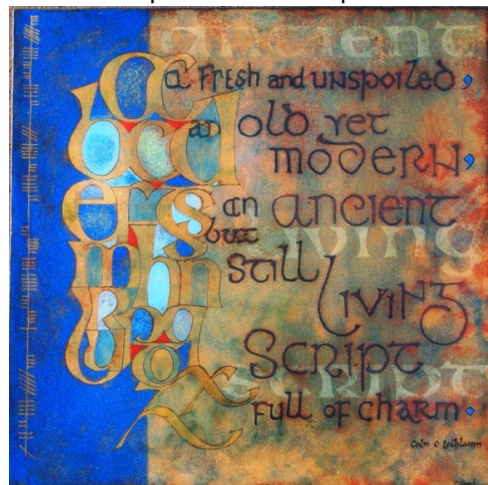 ancient
a fresh and unspoiled,
an old yet
modern,
an ancient
but
still
living
script
full of charm.
Colm Ó Lochlainn